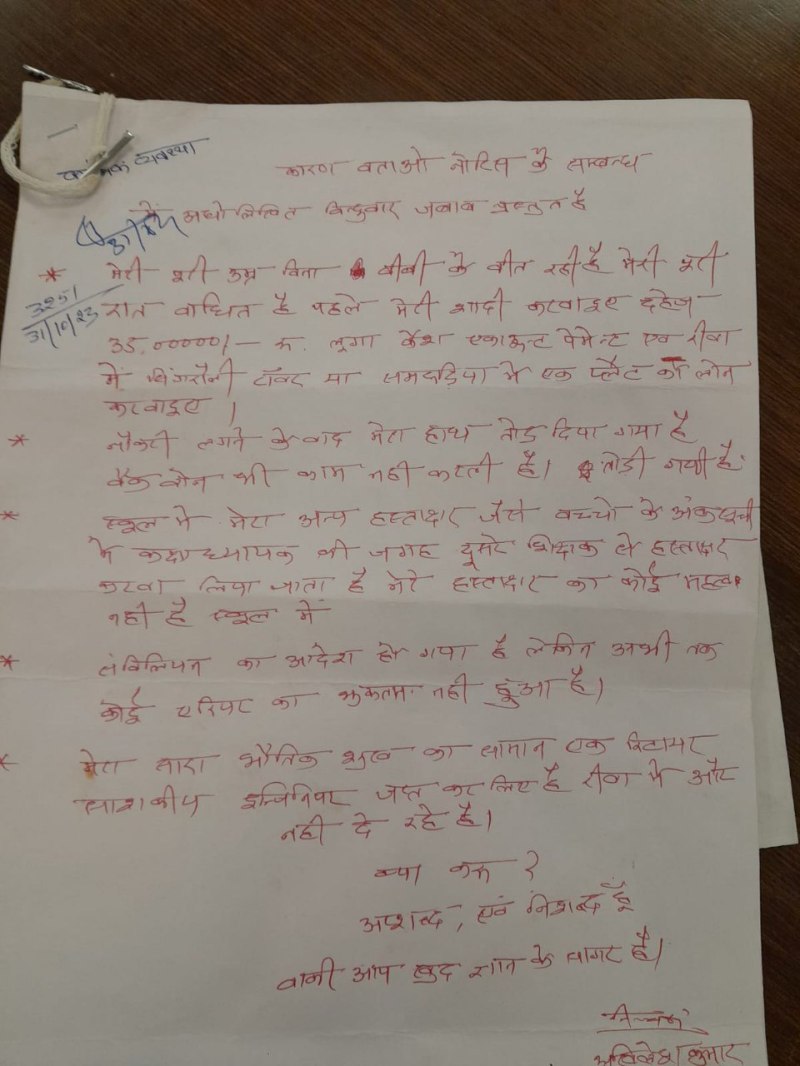 व्यवस्था
कारण बताओ नोटिस के सम्बन्ध
में अधोलिखित बिन्दुवार जवाब प्रस्तुत है
* मेरी पूरी उम्र बिना बीबी के बीत रही है मेरी पूरी
3251
31/10/23
रात बाधित है पहले मेरी शादी करवाइए दहेज
35,00000/- रू. लूगा कैश एकाऊन्ट पेमेन्ट एवं रीवा
में सिंगरौली टॉवर या समदड़िया में एक प्लैट की लोन
करवाइए।
* नौकरी लगने के बाद मेरा हाथ तोड़ दिया गया है
बैक बोन भी काम नही करती है। तोडी गयी है।
* स्कूल मे मेरा अन्य हस्ताक्षर जैसे बच्चो के अंकसूची
मे कक्षाध्यापक की जगह दूसरे शिक्षक से हस्ताक्षर
करवा लिया जाता है मेरे हस्ताक्षर का कोई महत्व
नही है स्कूल में
* संविलियन का आदेश हो गया है लेकिन अभी तक
कोई एरियर का भुकतान नही हुआ है।
* मेरा सारा भौतिक सुख का सामान एक रिटायर
साशकीय इन्जिनियर जप्त कर लिए है रीवा मे और
नही दे रहे है।
क्या करू ?
अपशब्द, एवं निशब्द हूँ
बाकी आप खुद ज्ञान के सागर है।
अखिलेश कुमार